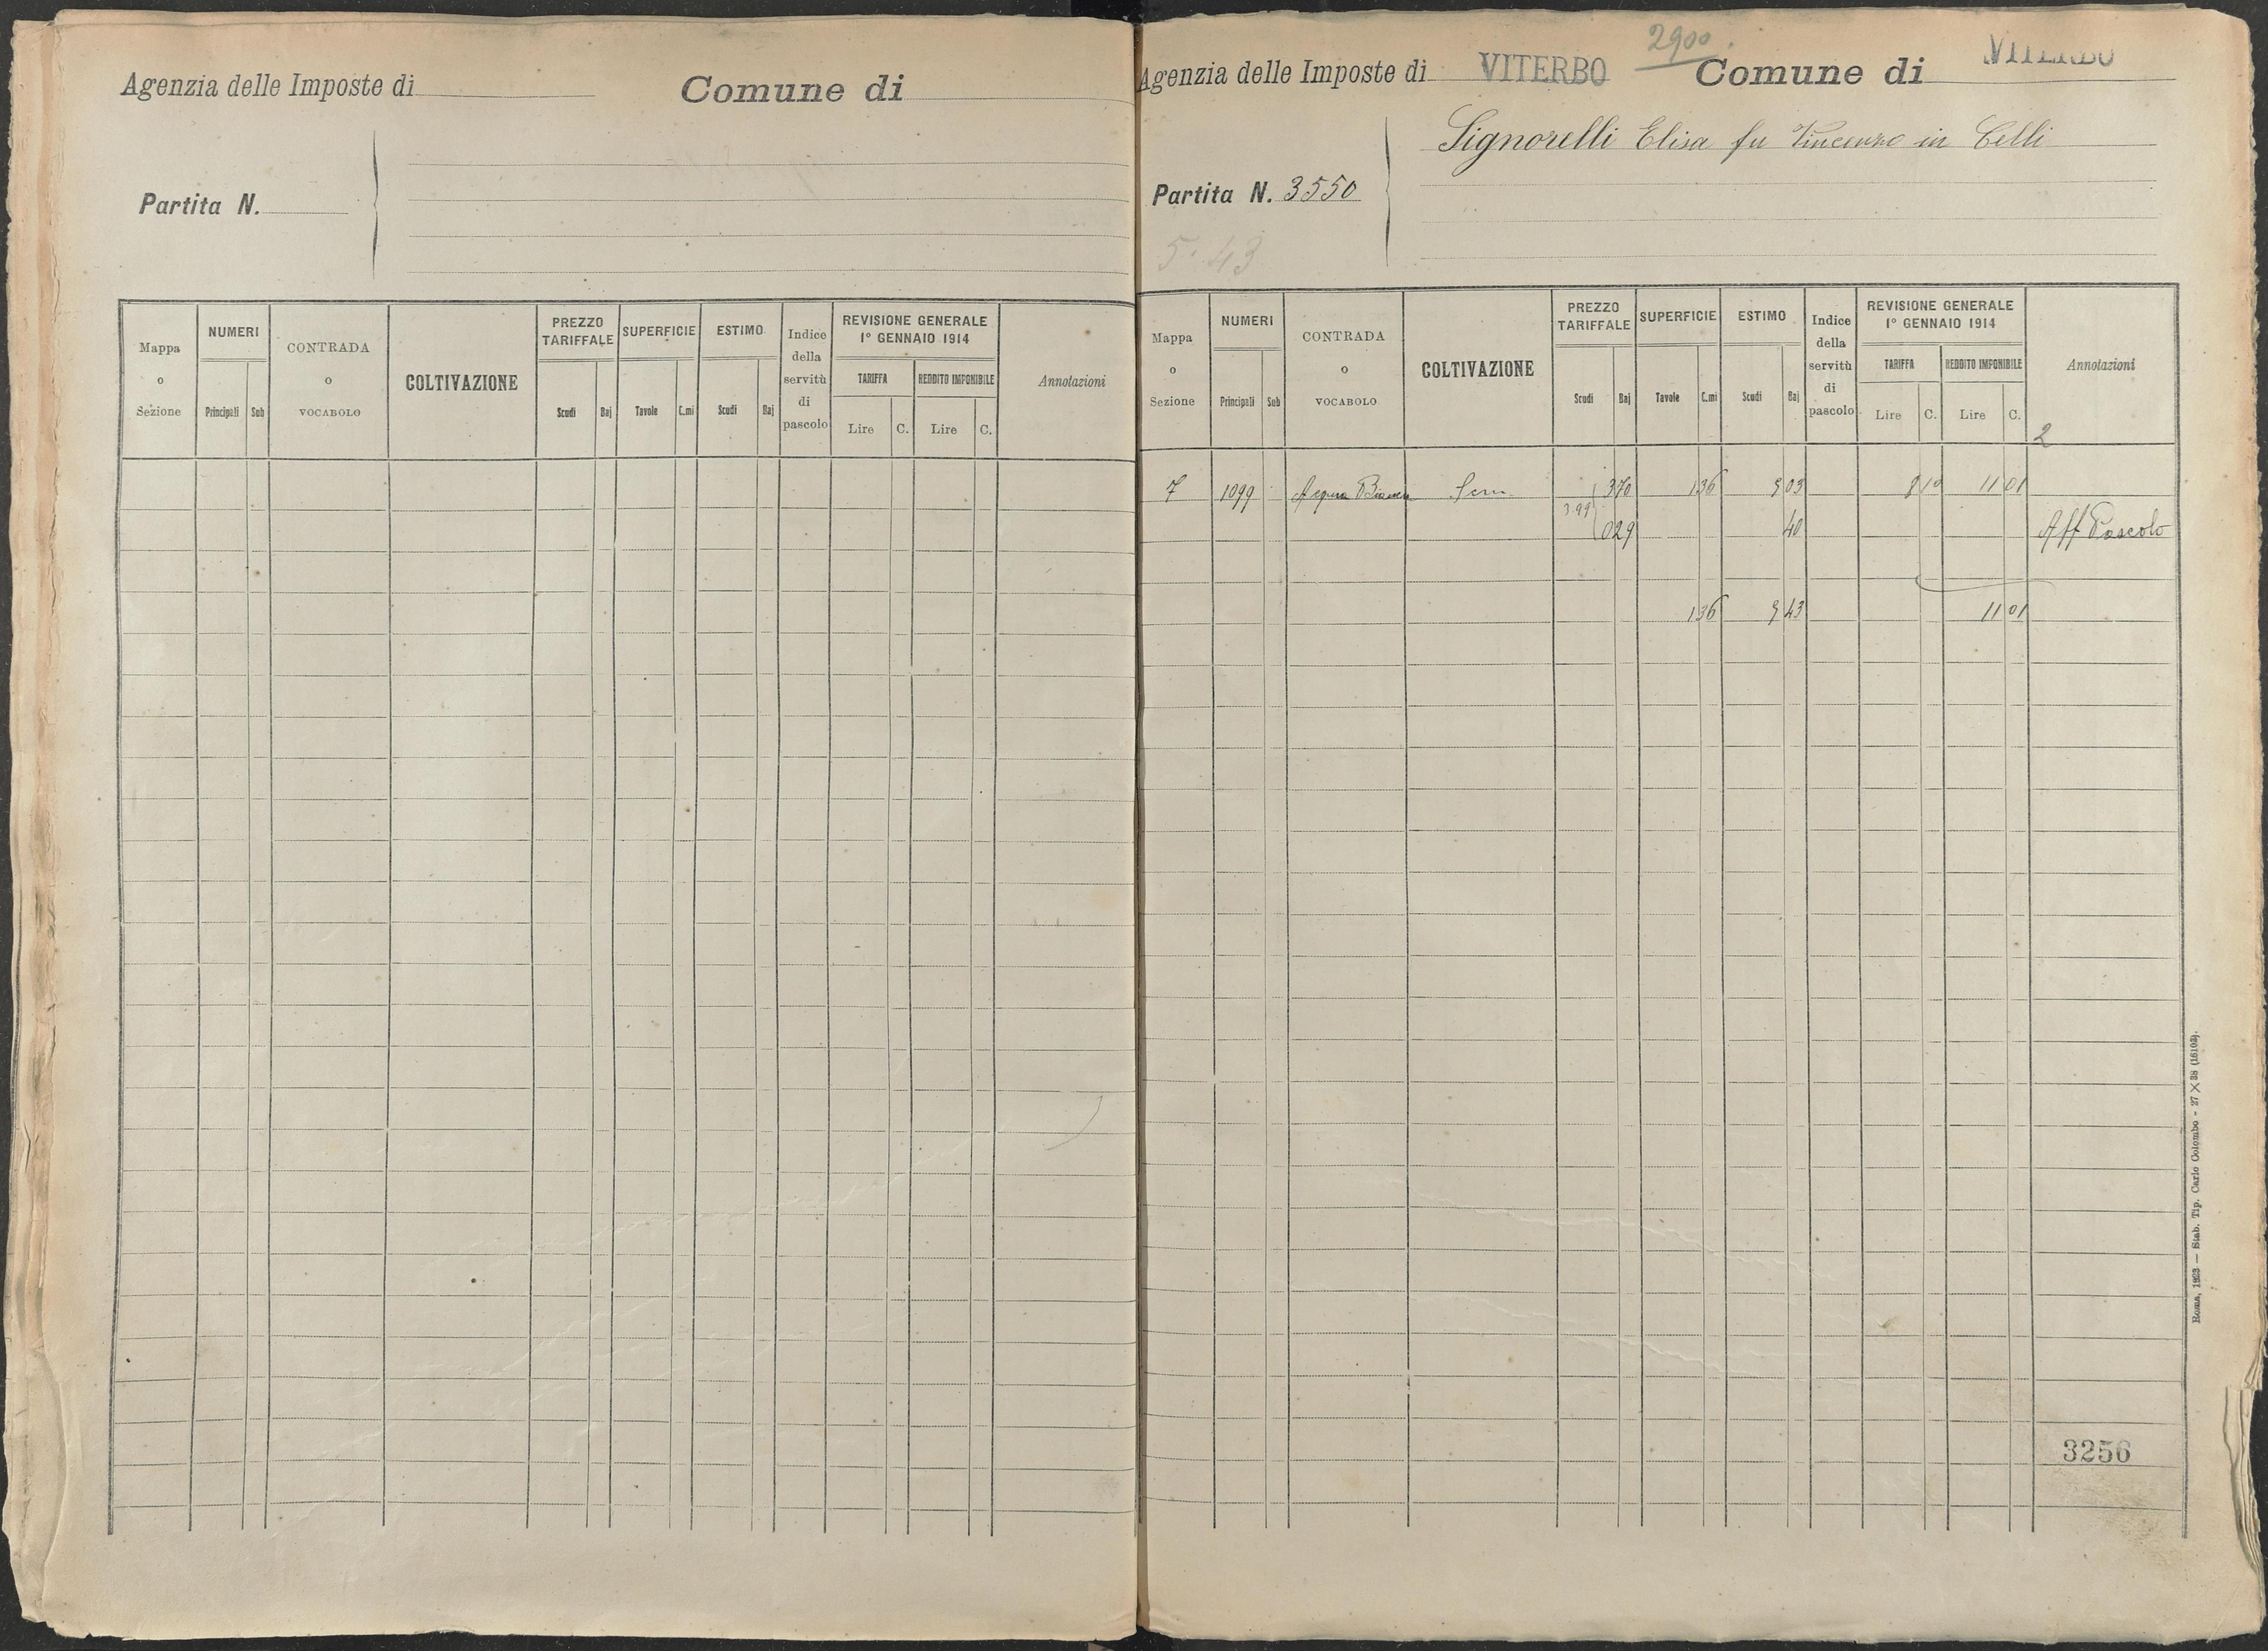 Agenzia delle Imposte di
Comune di
Partita N.
Mappa o Sezione
NUMERI
Principali
Sub
CONTRADA o VOCABOLO
COLTIVAZIONE
PREZZO TARIFFALE
Scudi
Baj
SUPERFICIE
Tavole
C.mi
ESTIMO
Scudi
Baj
Indice della servitù di pascolo
REVISIONE GENERALE
1° GENNAIO 1914
TARIFFA
Lire
C.
REDDITO IMPONIBILE
Lire
C.
Annotazioni
2900
Agenzia delle Imposte di VITERBO
Comune di VITERBO
Signorelli Elisa fu Vincenzo in Celli
Partita N. 3550
5.43
Mappa o Sezione
NUMERI
Principali
Sub
CONTRADA o VOCABOLO
COLTIVAZIONE
PREZZO TARIFFALE
Scudi
Baj
SUPERFICIE
Tavole
C.mi
ESTIMO
Scudi
Baj
Indice della servitù di pascolo
REVISIONE GENERALE
1° GENNAIO 1914
TARIFFA
Lire
C.
REDDITO IMPONIBILE
Lire
C.
Annotazioni
2
7 1099 Acqua Bianca Sem. 3 70 1 36 5 03 8 10 11 01
3.99
0 29 40 Aff Pascolo
1 36 5 43 11 01
3256
Roma, 1923 — Stab. Tip. Carlo Colombo - 27 X 38 (16103).